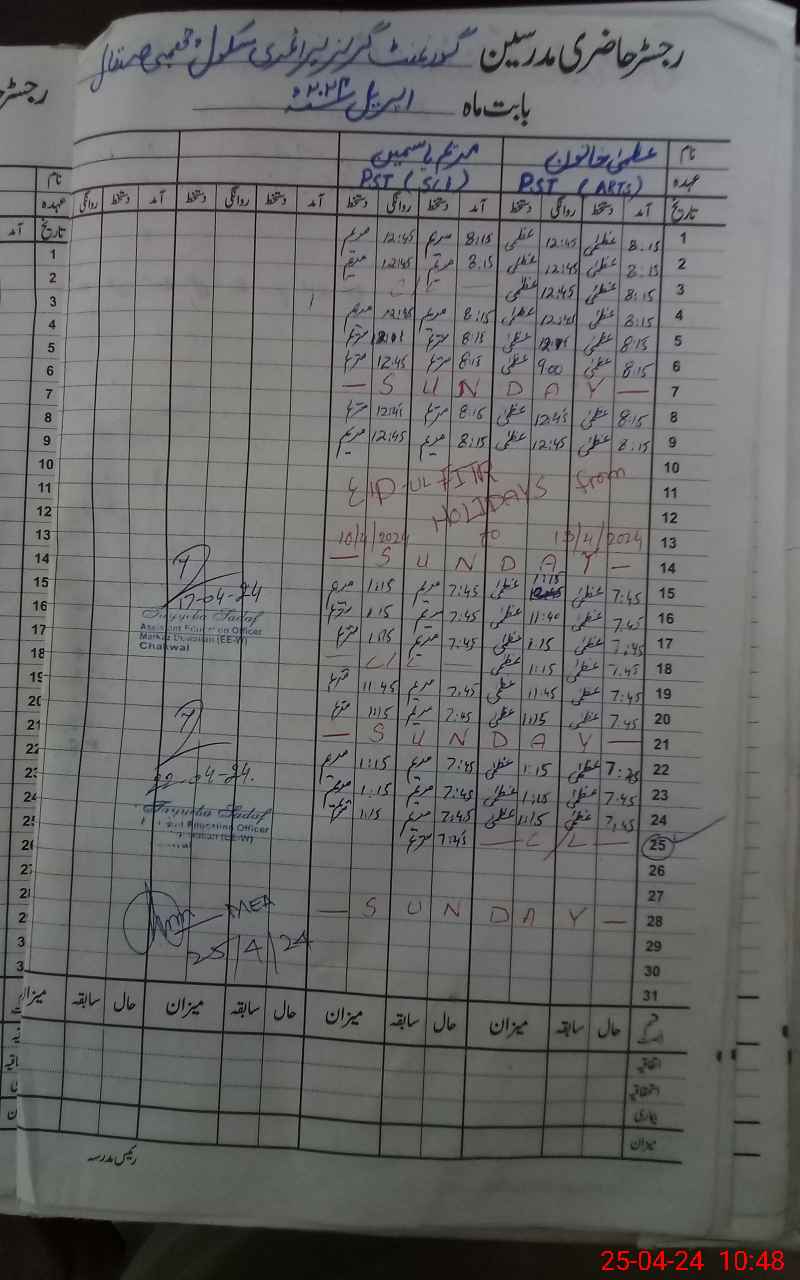 رجسٹر حاضری مدرسین گورنمنٹ گرلز پرائمری سکول
بابت ماہ اپریل ۲۰۲۴
نام عظمیٰ خاتون مریم یاسمین
عہدہ PST (ARTS) PST (SCI)
تاریخ آمد دستخط روانگی دستخط آمد دستخط روانگی دستخط آمد دستخط روانگی دستخط
1 8:15 عظمیٰ 12:45 عظمیٰ 8:15 مریم 12:45 مریم
2 8:15 عظمیٰ 12:45 عظمیٰ 8:15 مریم 12:45 مریم
3 8:15 عظمیٰ 12:45 عظمیٰ C/L
4 8:15 عظمیٰ 12:45 عظمیٰ 8:15 مریم 12:45 مریم
5 8:15 عظمیٰ عظمیٰ 8:15 مریم مریم
6 8:15 عظمیٰ 9:00 عظمیٰ 8:15 مریم 12:45 مریم
7 — S U N D A Y —
8 8:15 عظمیٰ 12:45 عظمیٰ 8:15 مریم 12:45 مریم
9 8:15 عظمیٰ 12:45 عظمیٰ 8:15 مریم 12:45 مریم
10
11 EID-UL FITR HOLIDAYS from
12
13 10/4/2024 to 13/4/2024
14 — S U N D A Y —
15 7:45 عظمیٰ 1:15 عظمیٰ 7:45 مریم 1:15 مریم
16 7:45 عظمیٰ 11:40 عظمیٰ 7:45 مریم 1:15 مریم
17 7:45 عظمیٰ 1:15 عظمیٰ 7:45 مریم 1:15 مریم
18 7:45 عظمیٰ 1:15 عظمیٰ — C/L —
19 7:45 عظمیٰ 11:45 عظمیٰ 7:45 مریم 11:45 مریم
20 7:45 عظمیٰ 1:15 عظمیٰ 7:45 مریم 1:15 مریم
21 — S U N D A Y —
22 عظمیٰ 1:15 عظمیٰ 7:45 مریم 1:15 مریم
23 7:45 عظمیٰ 1:15 عظمیٰ 7:45 مریم 1:15 مریم
24 7:45 عظمیٰ 1:15 عظمیٰ 7:45 مریم 1:15 مریم
25 — C/L — 7:45 مریم
26
27
28 — S U N D A Y —
29
30
31
17-04-24
Tayyiba Sadaf
Assistant Education Officer
Markaz (EE-W)
Chakwal
22-04-24.
Tayyiba Sadaf
Education Officer
(EE-W)
MEA
25/4/24
حال سابقہ میزان حال سابقہ میزان حال سابقہ میزان حال سابقہ میزان
اتفاقیہ
استحقاقیہ
بیماری
میزان
رئیس مدرسہ
25-04-24 10:48